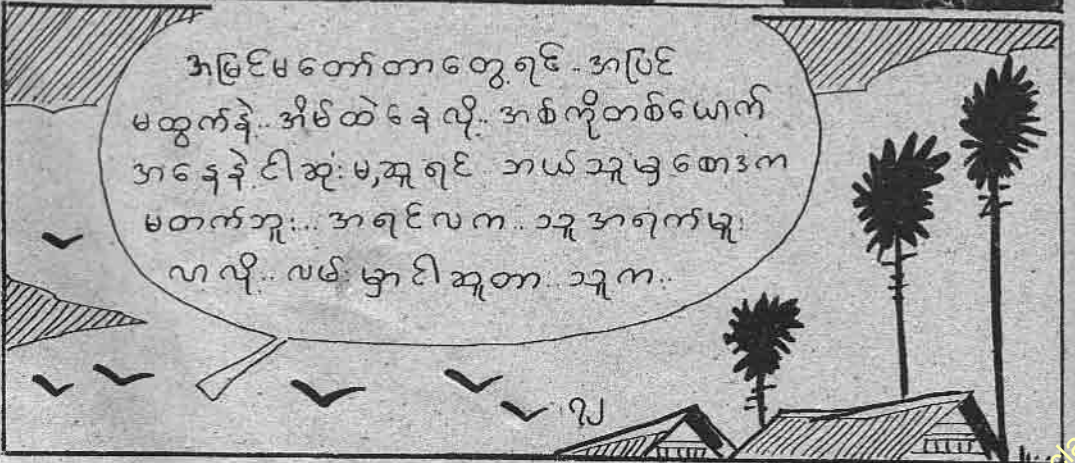 အမြင်မတော်တာတွေ့ရင်.. အပြင်
မထွက်နဲ့.. အိမ်ထဲနေလို့.. အစ်ကိုတစ်ယောက်
အနေနဲ့ ငါဆုံးမ,ဆူရင် ဘယ်သူမှ စောဒက
မတက်ဘူး... အရင်လက.. သူအရက်မူး
လာလို့.. လမ်းမှာ ငါဆူတာ.. သူက..
၇၂